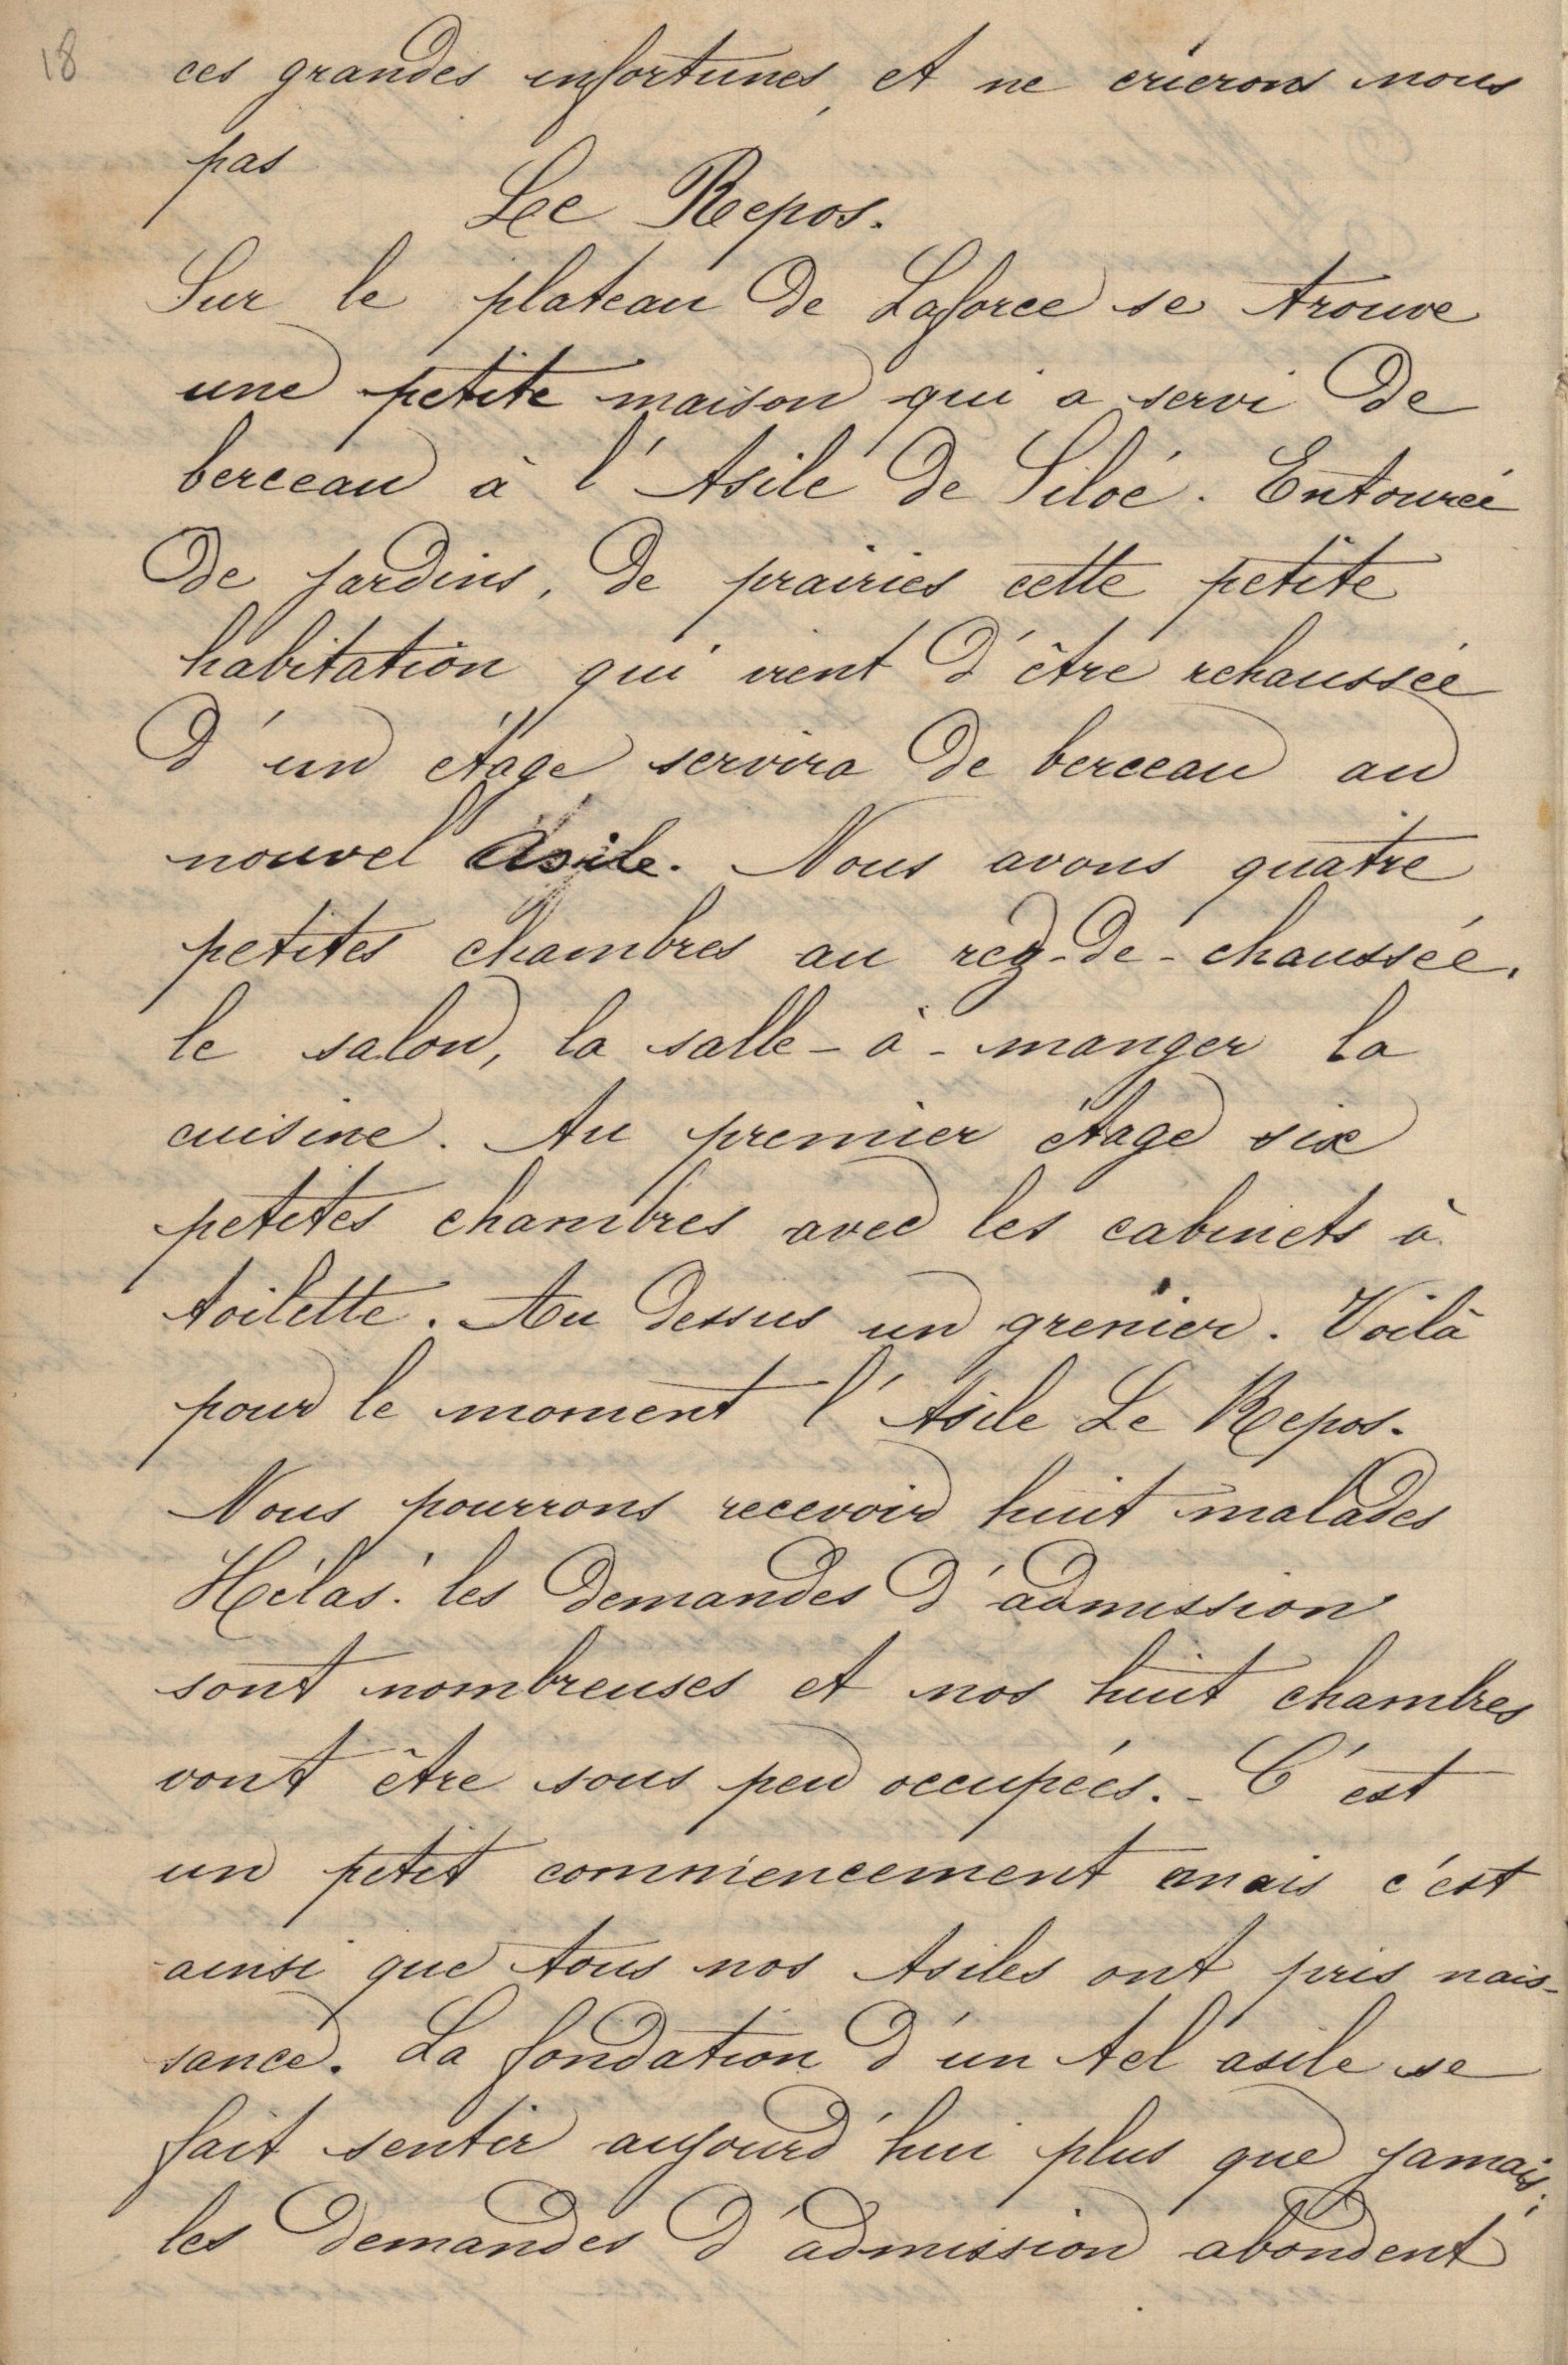 18
ces grandes infortunes, et ne crierons nous
pas
Le Repos.
Sur le plateau de Laforce se trouve
une petite maison qui a servi de
berceau à l'Asile de Siloé. Entourée
de jardins, de prairies cette petite
habitation qui vient d'être rehaussée
d'un étage servira de berceau au
nouvel Asile. Nous avons quatre
petites chambres au rez-de-chaussée.
le salon, la salle-à-manger la
cuisine. Au premier étage six
petites chambres avec les cabinets à
toilette. Au dessus un grenier. Voilà
pour le moment l'Asile Le Repos.
Nous pourrons recevoir huit malades
Hélas! les demandes d'admission
sont nombreuses et nos huit chambres
vont être sous peu occupées. - C'est
un petit commencement mais c'est
ainsi que tous nos Asiles ont pris nais-
sance. La fondation d'un tel asile se
fait sentir aujourd'hui plus que jamais;
les demandes d'admission abondent